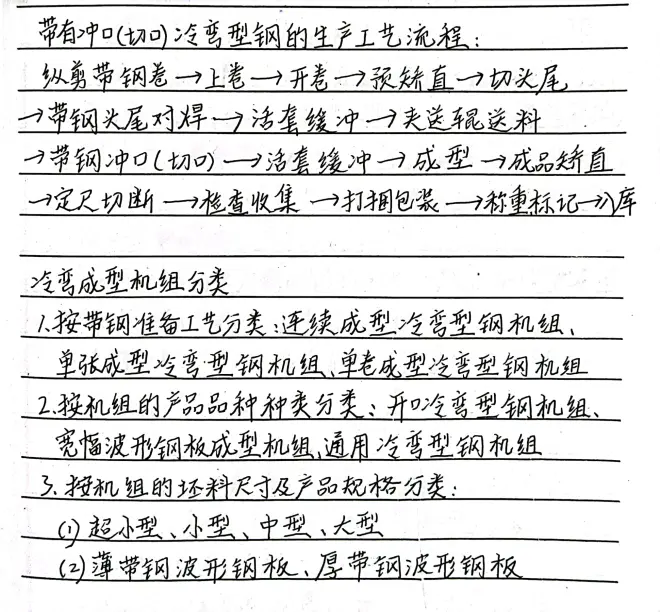 带有冲口(切口)冷弯型钢的生产工艺流程:
纵剪带钢卷→上卷→开卷→预矫直→切头尾
→带钢头尾对焊→活套缓冲→夹送辊送料
→带钢冲口(切口)→活套缓冲→成型→成品矫直
→定尺切断→检查收集→打捆包装→称重标记→入库
冷弯成型机组分类
1.按带钢准备工艺分类:连续成型冷弯型钢机组、
单张成型冷弯型钢机组、单卷成型冷弯型钢机组
2.按机组的产品品种种类分类:开口冷弯型钢机组、
宽幅波形钢板成型机组、通用冷弯型钢机组
3.按机组的坯料尺寸及产品规格分类:
(1)超小型、小型、中型、大型
(2)薄带钢波形钢板、厚带钢波形钢板